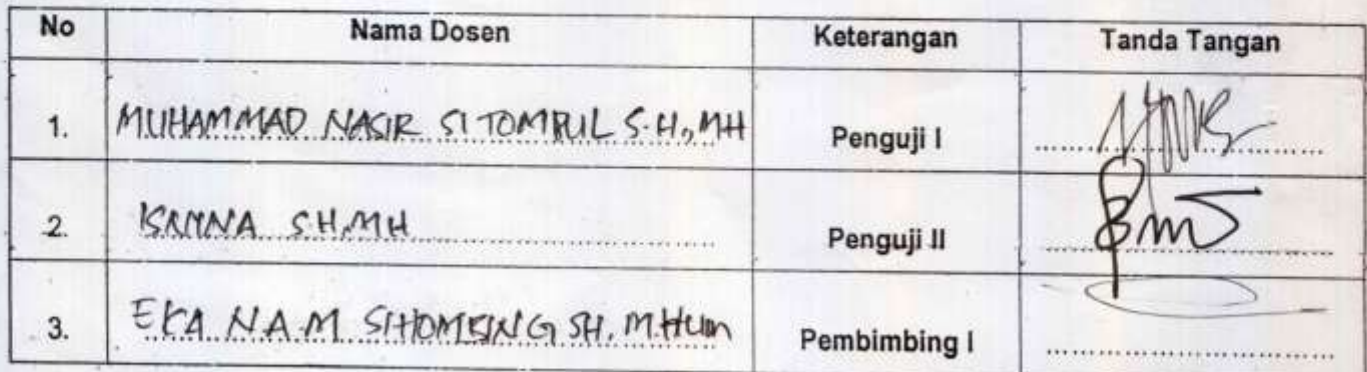 No Nama Dosen Keterangan Tanda Tangan
1. MUHAMMAD NASIR SITOMPUL S.H., MH Penguji I
2. S.H.MH Penguji II
3. EKA N.A.M SIHOMBING SH. M.Hum Pembimbing I